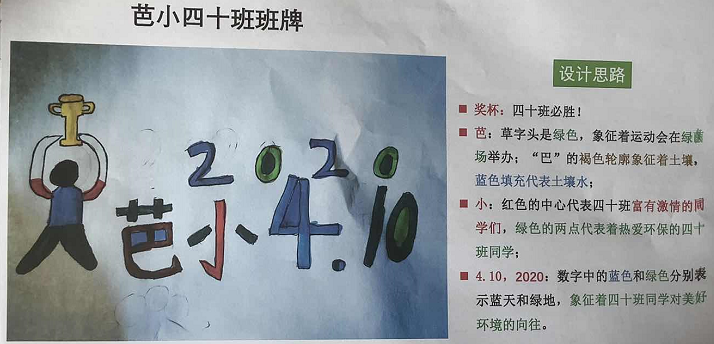 芭小四十班班牌
2020
芭小4.10
设计思路
奖杯：四十班必胜！
芭：草字头是绿色，象征着运动会在绿茵
场举办；“巴”的褐色轮廓象征着土壤，
蓝色填充代表土壤水；
小：红色的中心代表四十班富有激情的同
学们，绿色的两点代表着热爱环保的四十
班同学；
4.10，2020：数字中的蓝色和绿色分别表
示蓝天和绿地，象征着四十班同学对美好
环境的向往。